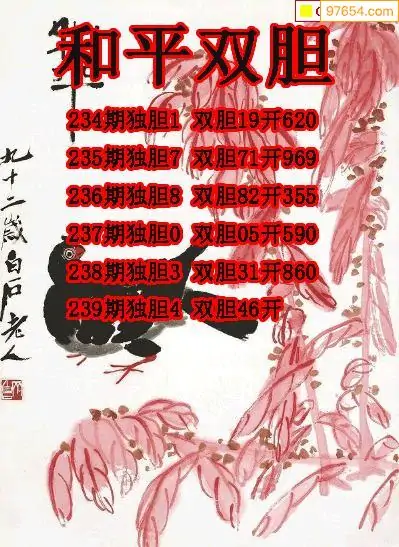 97654.com
和平双胆
234期独胆1 双胆19开620
235期独胆7 双胆71开969
236期独胆8 双胆82开355
237期独胆0 双胆05开590
238期独胆3 双胆31开860
239期独胆4 双胆46开
九十二岁白石老人